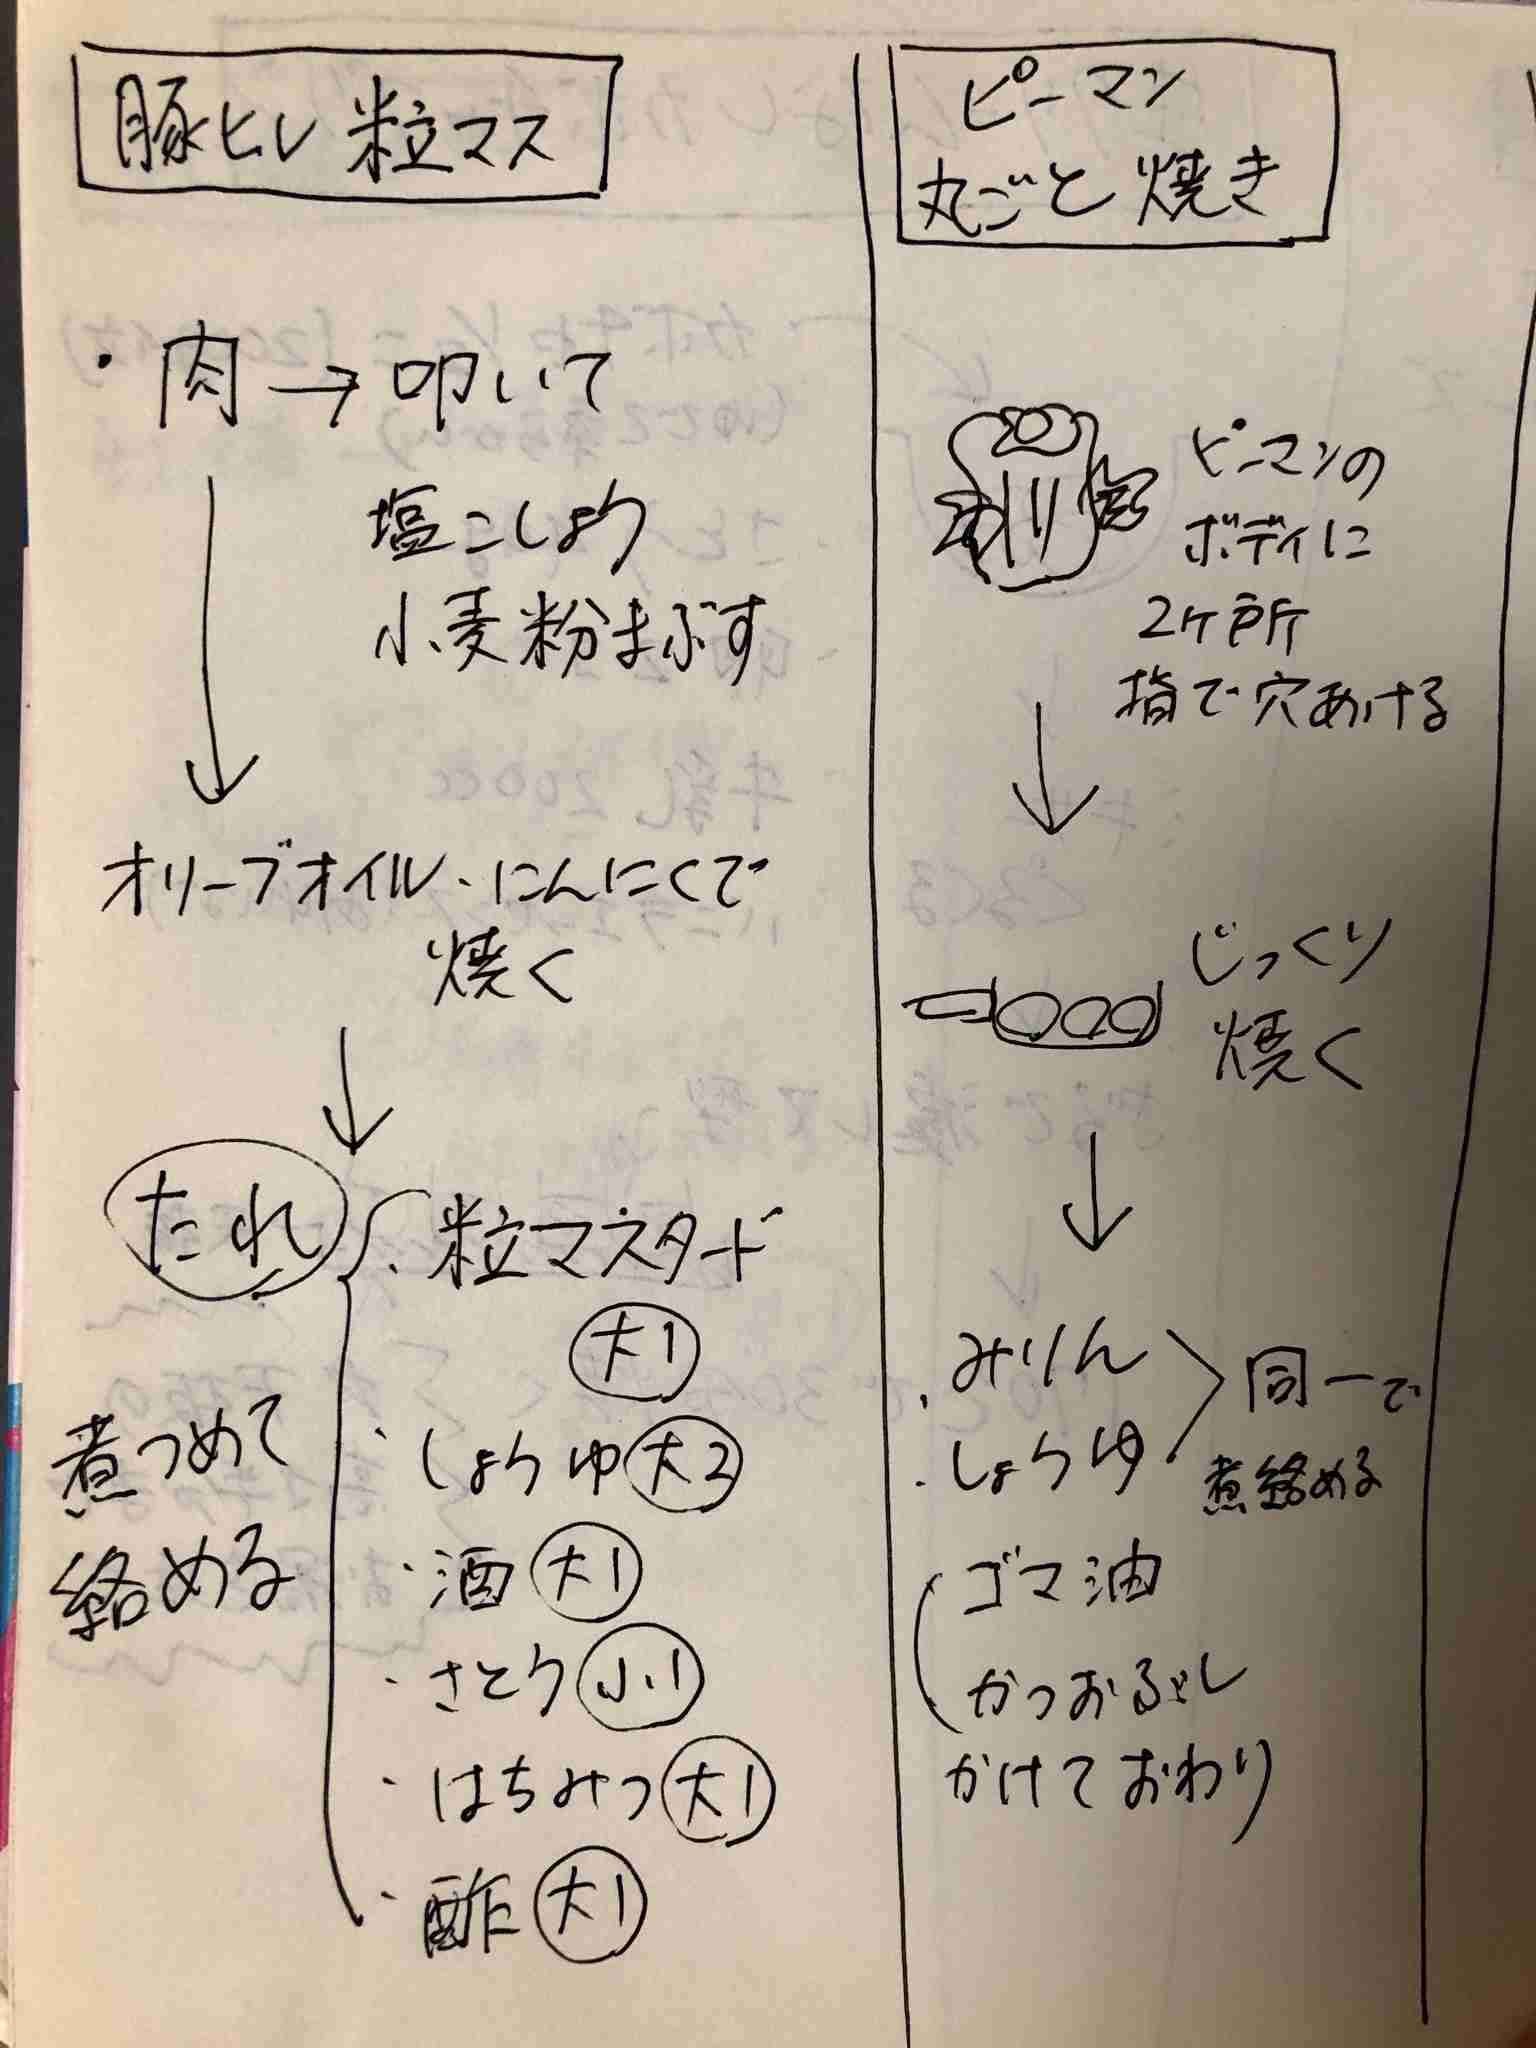 豚ヒレ 粒マス
・肉→叩いて
塩こしょう
小麦粉まぶす
オリーブオイル・にんにくで
焼く
たれ
・粒マスタード
大1
・しょうゆ 大2
・酒 大1
・さとう 小1
・はちみつ 大1
・酢 大1
煮つめて
絡める
ピーマン
丸ごと焼き
ピーマンの
ボディに
2ヶ所
指で穴あける
じっくり
焼く
・みりん
・しょうゆ
同一で
煮絡める
ゴマ油
かつおぶし
かけておわり